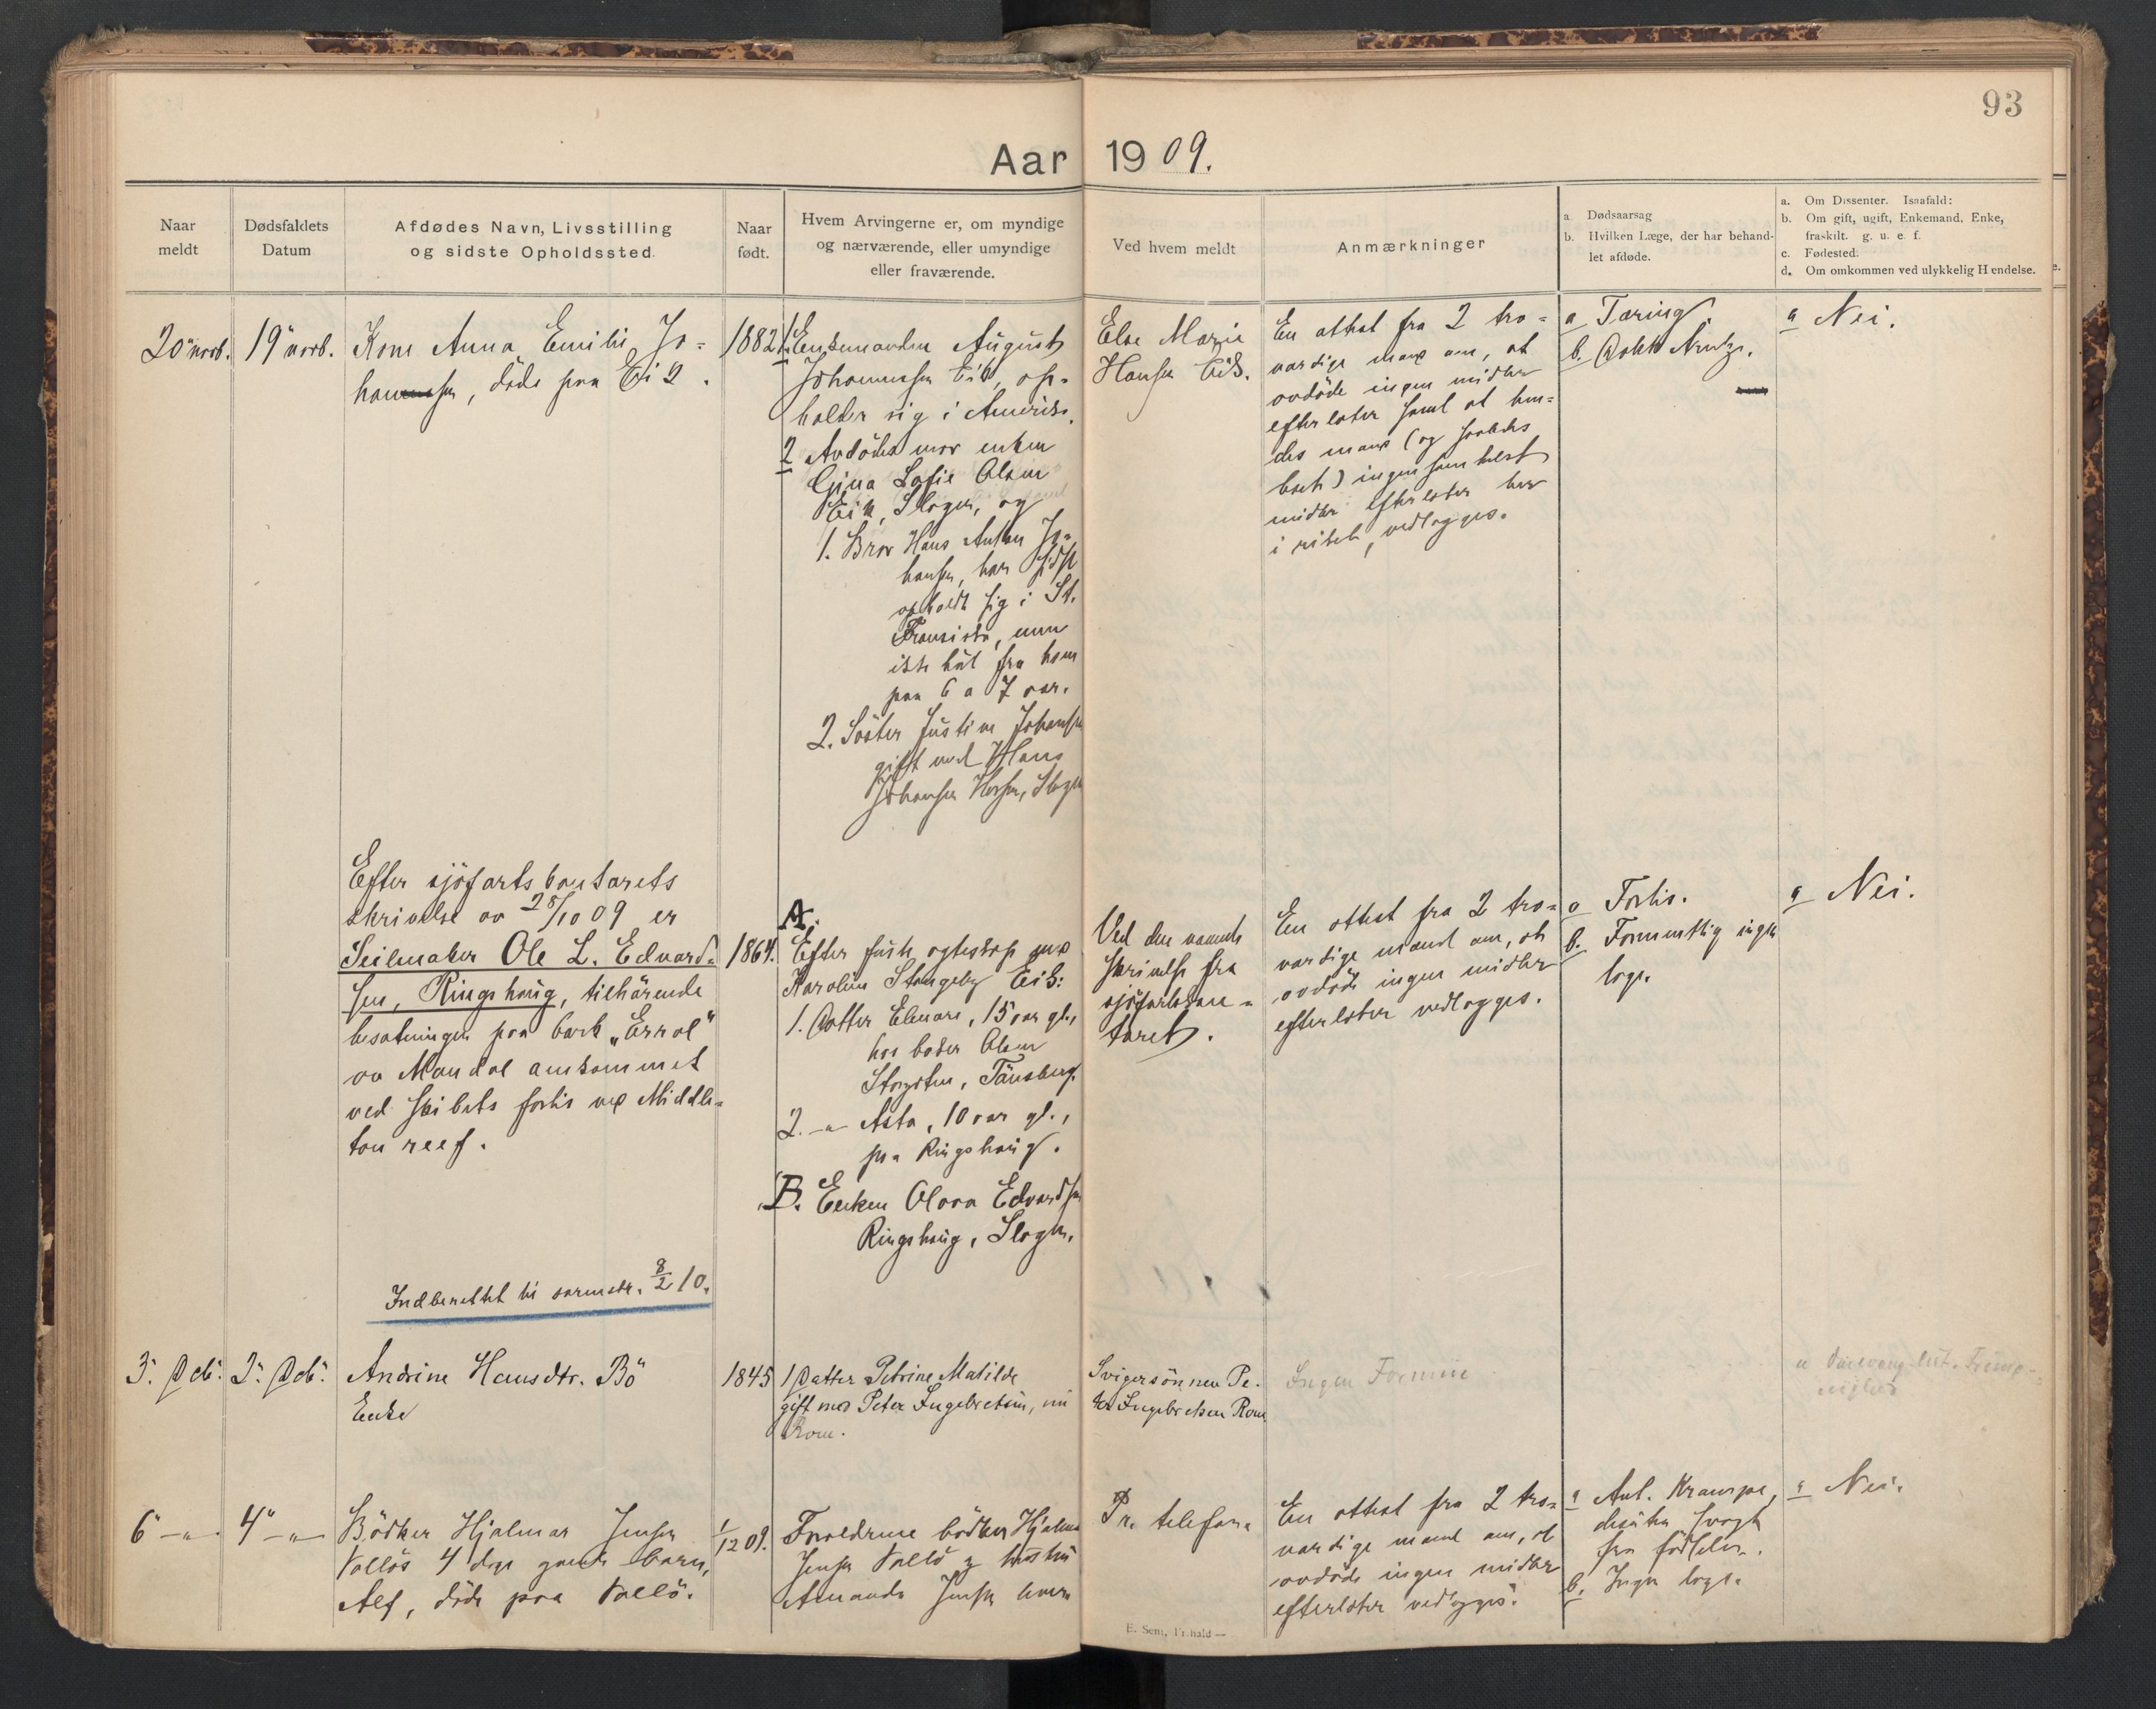 93
Aar 1909.
Naar
meldt
Dødsfaldets
Datum
Afdødes Navn, Livsstilling
og sidste Opholdssted.
Naar
født.
Hvem Arvingerne er, om myndige
og nærværende, eller umyndige
eller fraværende.
Ved hvem meldt
Anmærkninger
a. Dødsaarsag
b. Hvilken Læge, der har behand-
let afdøde.
a. Om Dissenter. Isaafald:
b. Om gift, ugift, Enkemand, Enke,
fraskilt. g. u. e. f.
c. Fødested.
d. Om omkommen ved ulykkelig Hendelse.
20 novb.
19 novb.
Kone Anna Emilie Jo=
hansen, døde paa Eik.
1882
1. Enkemanden August
Johannesen Eik, op-
holder sig i Amerika.
2 Avdödes mor enken
Gina Sofie Olsen
Eik, Slagen, og
1. Bror Hans Anton Jo-
hansen, har sidst
opholdt sig i St.
Fransisko, men
ikke hørt fra ham
paa 6 a 7 aar.
2. Søster Justine Johansen
gift med Hans
Johansen, Slagen
Else Marie
Hansen Eik.
En attest fra 2 tro=
værdige mænd om, at
avdöde ingen midler
efterlater samt at hen=
des mand (og saaledes
boet) ingen som helst
midler efterlater her
i riket, vedlægges.
a Tæring.
b.
a Nei.
Efter sjöfartskontorets
skrivelse av 28/10 09 er
Seilmaker Ole L. Edvard=
sen, Ringshaug, tilhörende
besætningen paa bark "Errol"
av Mandal omkommet
ved skibets forlis ved Middle=
ton reef.
Indberettet til sorenskr. 8/2 10.
1864.
A.
Efter første egteskap med
Karoline Stangeby Eik:
1. Datter Elenore, 15 aar gl.,
hos Olsen
Tönsberg.
2. -"- Asta, 10 aar gl.,
paa Ringshaug.
B. Enken Olava Edvardsen
Ringshaug, Slagen.
Ved den nævnte
skrivelse fra
sjöfartskon=
toret.
En attest fra 2 tro=
værdige mænd om, at
avdöde ingen midler
efterlater vedlægges.
a Forlis.
b. Formentlig ingen
læge.
a Nei.
3. Dcb.
2. Dcb.
Andrine Hansdtr. Bö
Enke
1845
1 Datter Petrine Matilde
gift med Peter Ingebretsen, nu
Rom.
Svigersönnen Pe-
ter Ingebretsen Rom
Ingen Formue
6 -"-
4 -"-
Bödker Hjalmar Jensen
Vallös 4 dage gamle barn,
Alf, døde paa Vallö.
1/12 09.
Forældrene bödker Hjalmar
Jensen Vallö og hustru
Amanda Jensen
Pr. telefon.
En attest fra 2 tro=
værdige mænd om, at
avdöde ingen midler
efterlater vedlægges.
a Ant. Krampe,
desuten svagt
fra fødselen.
b. Ingen læge.
a Nei.
E. Sem, Fr.hald —